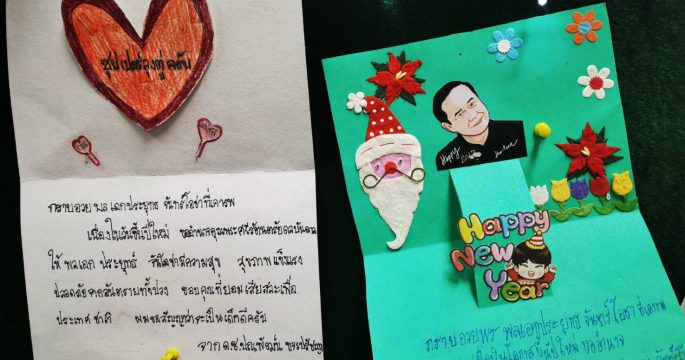 ซุปเปอร์ลุงตู่ ครับ
กราบอวยพลเอกประยุทธ จันทร์โอชาที่เคารพ
เนื่องในวันขึ้นปีใหม่ ขออำนาจคุณพระศรีรัตนตรัยดลบันดาล
ให้ พลเอก ประยุทธ์ จันโอชามีความสุข สุขภาพแข็งแรง
ปลอดภัยจากอันตรายทั้งปวง ขอบคุณที่ยอมเสียสละเพื่อ
ประเทศชาติ ผมขอสัญญาว่าจะเป็นเด็กดีครับ
จาก ด.ช.
Happy
Happy
New
Year
กราบอวยพร พลเอกประยุทธ์ จันทร์โอชา ที่เคารพ
เนื่องในโอกาสขึ้นปีใหม่ ขออำนาจ